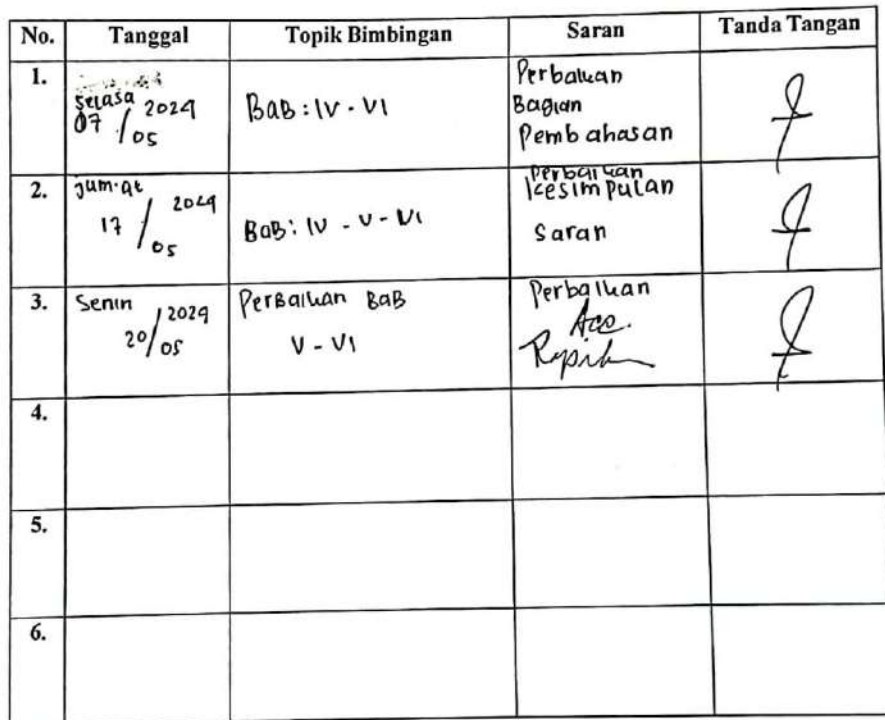 No. Tanggal Topik Bimbingan Saran Tanda Tangan
1.
Selasa
07 / 05 2024
Bab : IV - VI
Perbaikan
Bagian
Pembahasan
2.
Jum'at
17 / 05 2024
Bab : IV - V - VI
Perbaikan
Kesimpulan
Saran
3.
Senin
20 / 05 2024
Perbaikan Bab
V - VI
Perbaikan
Acc.
4.
5.
6.